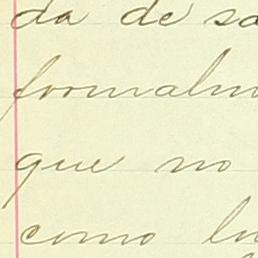 da de sa
formalm
que no
como lu